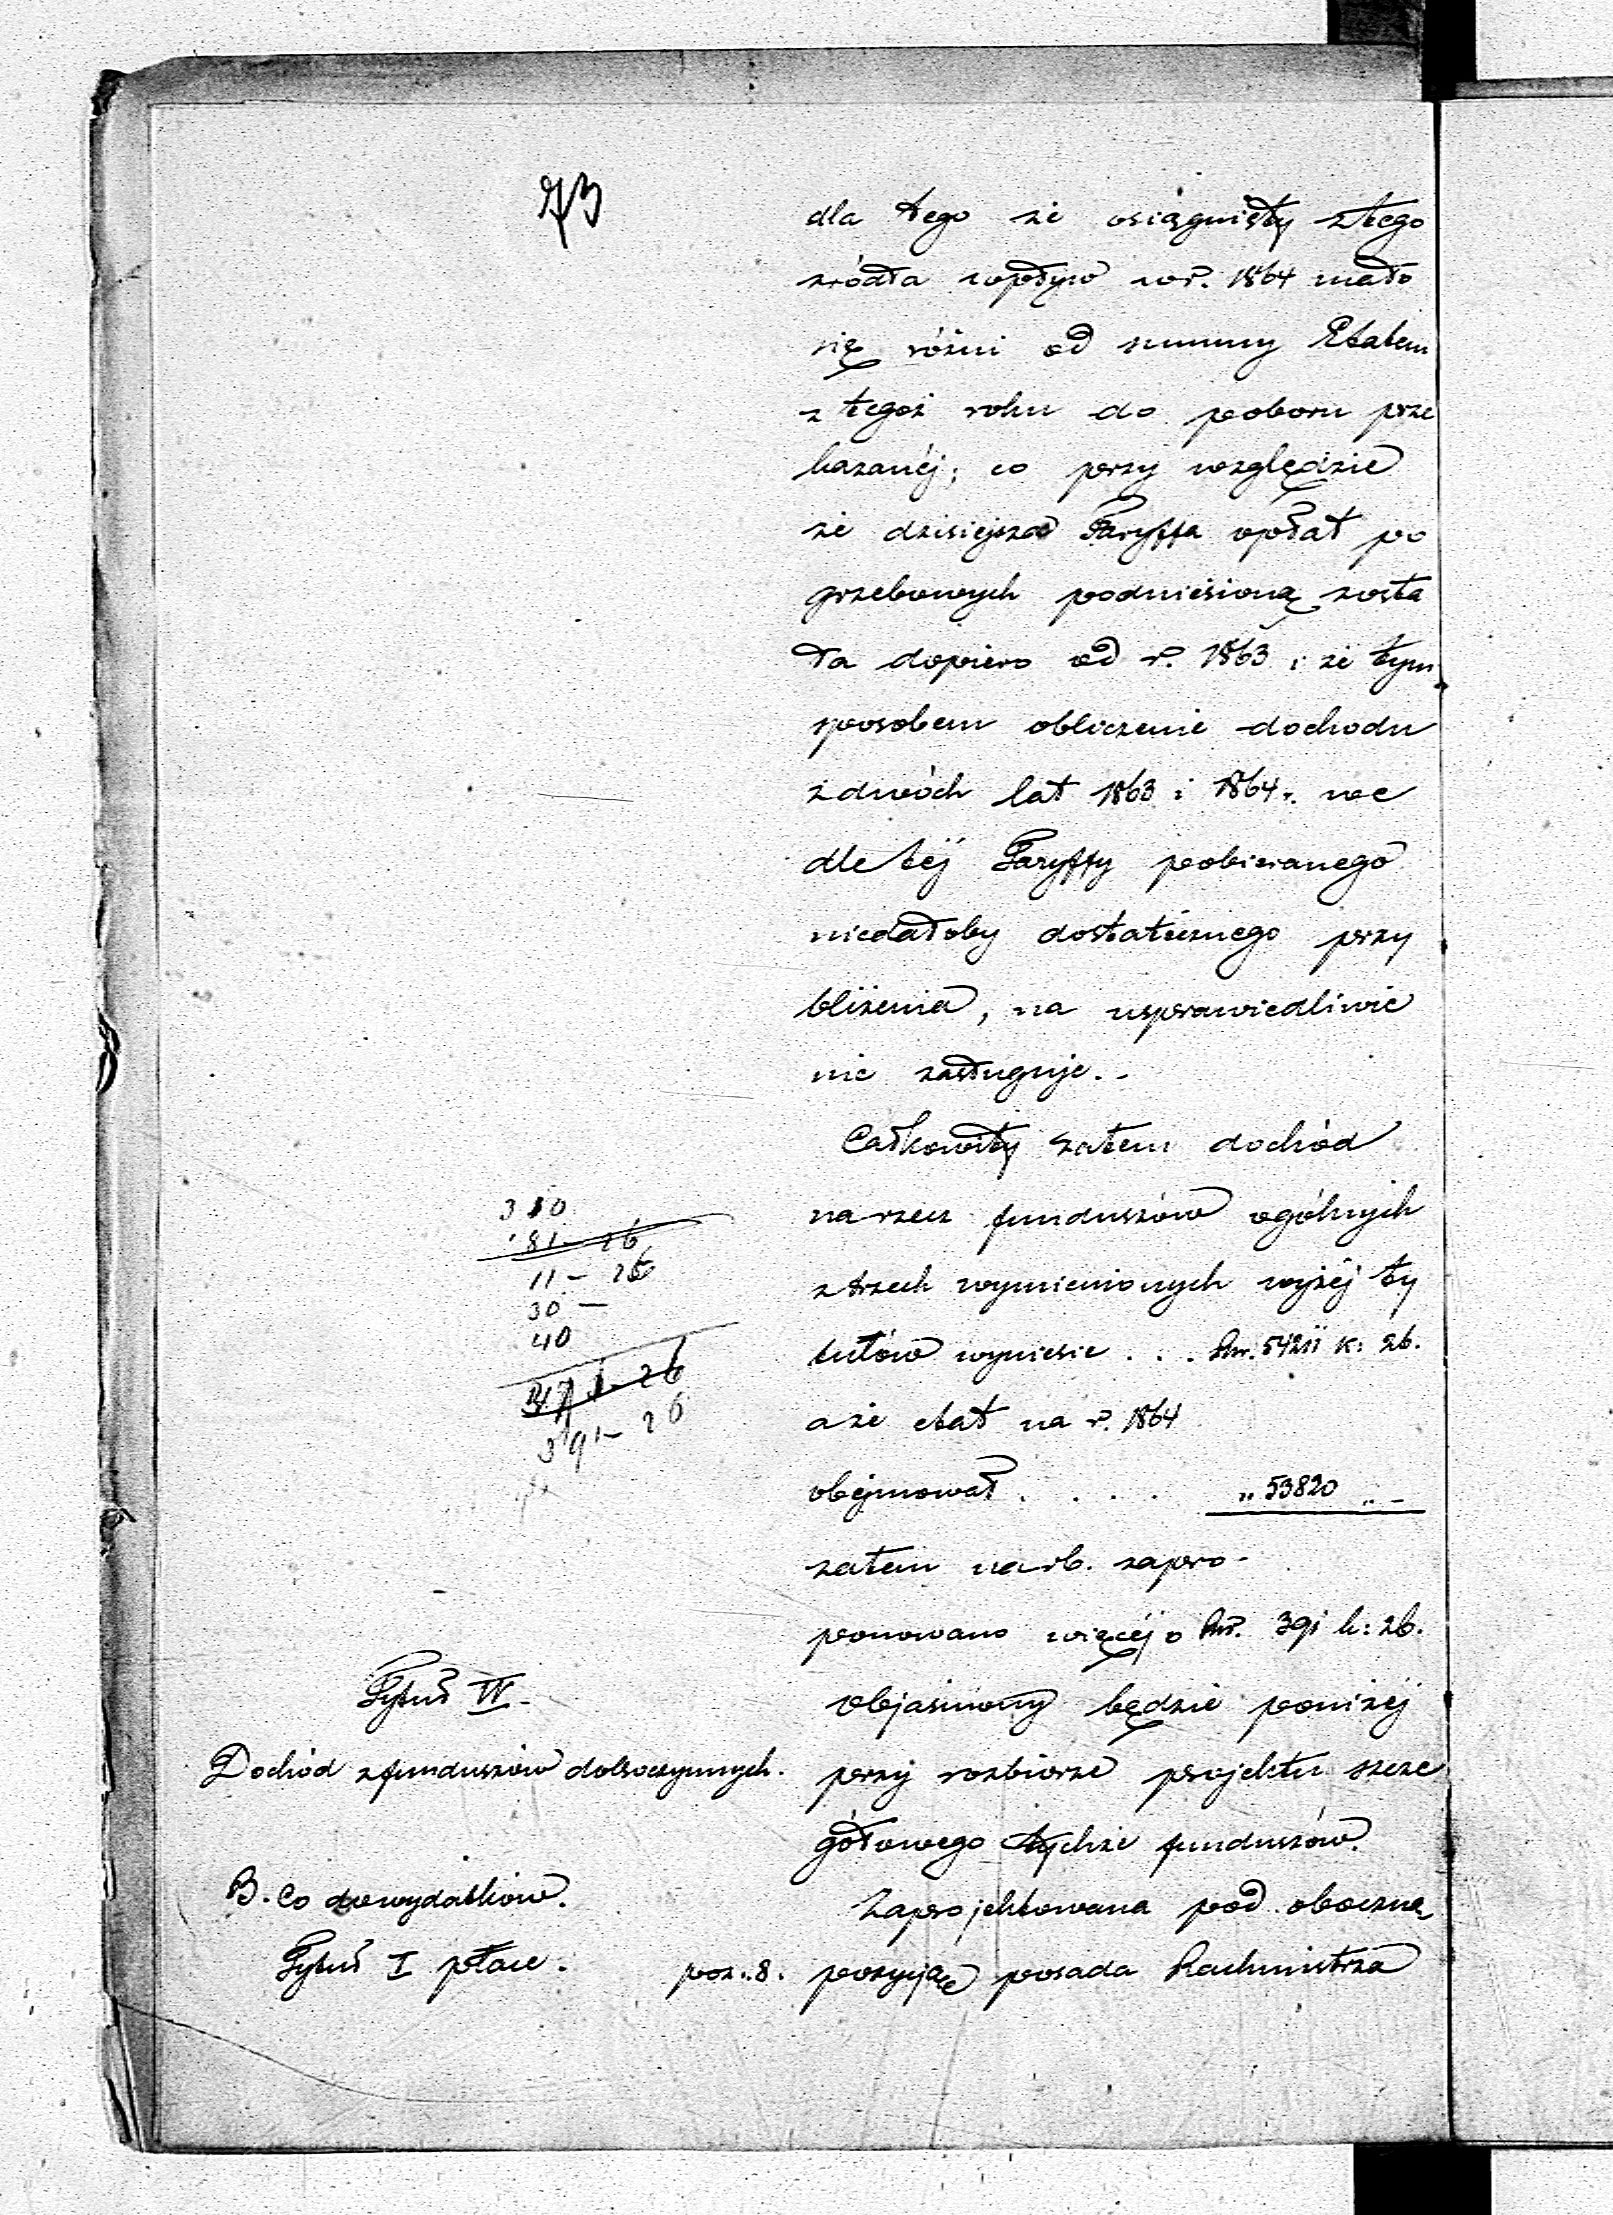 73
dla tego że osiągnięty z tego
źródła wpływ w r. 1864 mało
się różni od summy Etatem
z tegoż roku do poboru prze
kazanéj; co przy względzie
że dzisiejsza Taryffa opłat po
grzebowych podniesioną zosta
ła dopiero od r. 1863 i że tym
sposobem obliczenie dochodu
z dwóch lat 1863 i 1864 r. we
dle téj Taryffy pobieranego
niedałoby dostatecznego przy
bliżenia, na usprawiedliwie
nie zasługuje.-
Całkowity zatem dochód
na rzecz funduszów ogólnych
z trzech wymienionych wyżéj ty
tułów wyniesie . . . Rsr. 54211 k: 26.
a że etat na r. 1864
obejmował . . . . „ 53820 „ -
zatem na r b. zapro-
ponowano więcéj o Rsr. 391 k: 26.
310
81 - 26
11 - 26
30 -
40
391 - 26
Tytuł IV.
Dochód z funduszów dobroczynnych.
objaśniony będzie poniżéj
przy rozbiorze projektu szcze
gółowego tychże funduszów.
B. Co do wydatków.
Tytuł I płace.
poz. 8.
Zaprojektowana pod oboczną
pozycją posada Rachmistrza